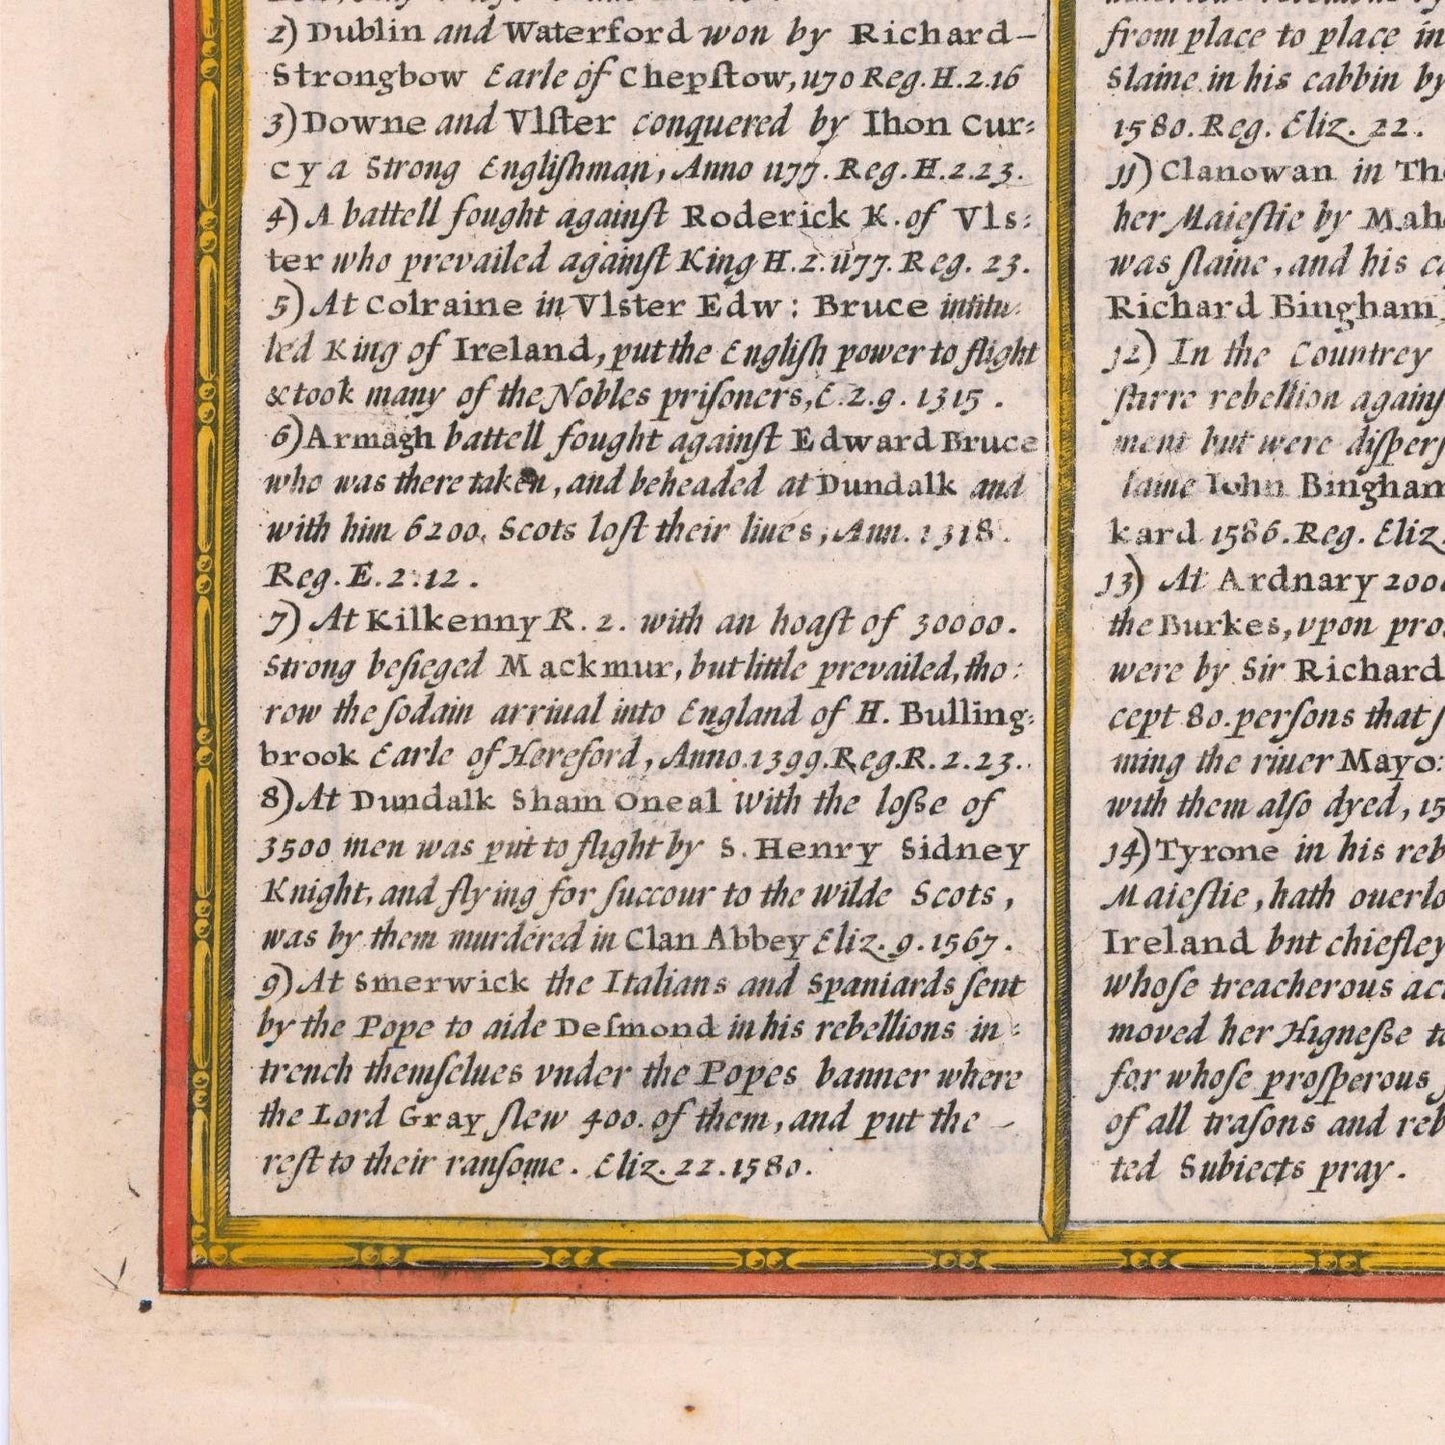 2) Dublin and Waterford won by Richard–
Strongbow Earle of Chepſtow, 1170 Reg. H. 2. 16
3) Downe and Vlſter conquered by Ihon Cur:
cy a Strong Engliſhman, Anno 1177. Reg. H. 2. 23.
4) A battell fought againſt Roderick K. of Vls:
ter who prevailed againſt King H. 2. 1177. Reg. 23.
5) At Colraine in Vlster Edw: Bruce intitu:
led King of Ireland, put the Engliſh power to flight
& took many of the Nobles priſoners, E. 2. 9. 1315.
6) Armagh battell fought againſt Edward Bruce
who was there taken, and beheaded at Dundalk and
with him 6200. Scots loſt their liues, Ann. 1318.
Reg. E. 2. 12.
7) At Kilkenny R. 2. with an hoaſt of 30000.
Strong beſieged Mackmur, but little prevailed, tho:
row the ſodain arriual into England of H. Bulling:
brook Earle of Hereford, Anno. 1399. Reg. R. 2. 23.
8) At Dundalk Sham Oneal with the loſse of
3500 men was put to flight by S. Henry Sidney
Knight, and flying for ſuccour to the wilde Scots,
was by them murdered in Clan Abbey Eliz. 9. 1567.
9) At Smerwick the Italians and Spaniards ſent
by the Pope to aide Deſmond in his rebellions in:
trench themſelues vnder the Popes banner where
the Lord Gray ſlew 400. of them, and put the –
reſt to their ranſome. Eliz. 22. 1580.
from place to place in
Slaine in his cabbin by
1580. Reg. Eliz. 22.
11) Clanowan in
her Maieſtie by
was ſlaine, and his
Richard Bingham
12) In the Countrey
ſturre rebellion
ment but were
laine Iohn Bingham
kard 1586. Reg. Eliz.
13) At Ardnary
the Burkes, vpon
were by Sir Richard
cept 80. perſons that
ming the riuer Mayo:
with them alſo dyed,
14) Tyrone in his
Maieſtie, hath
Ireland bnt chiefley
whoſe treacherous
moved her Higneſse
for whoſe proſperous
of all traſons and
ted Subiects pray.